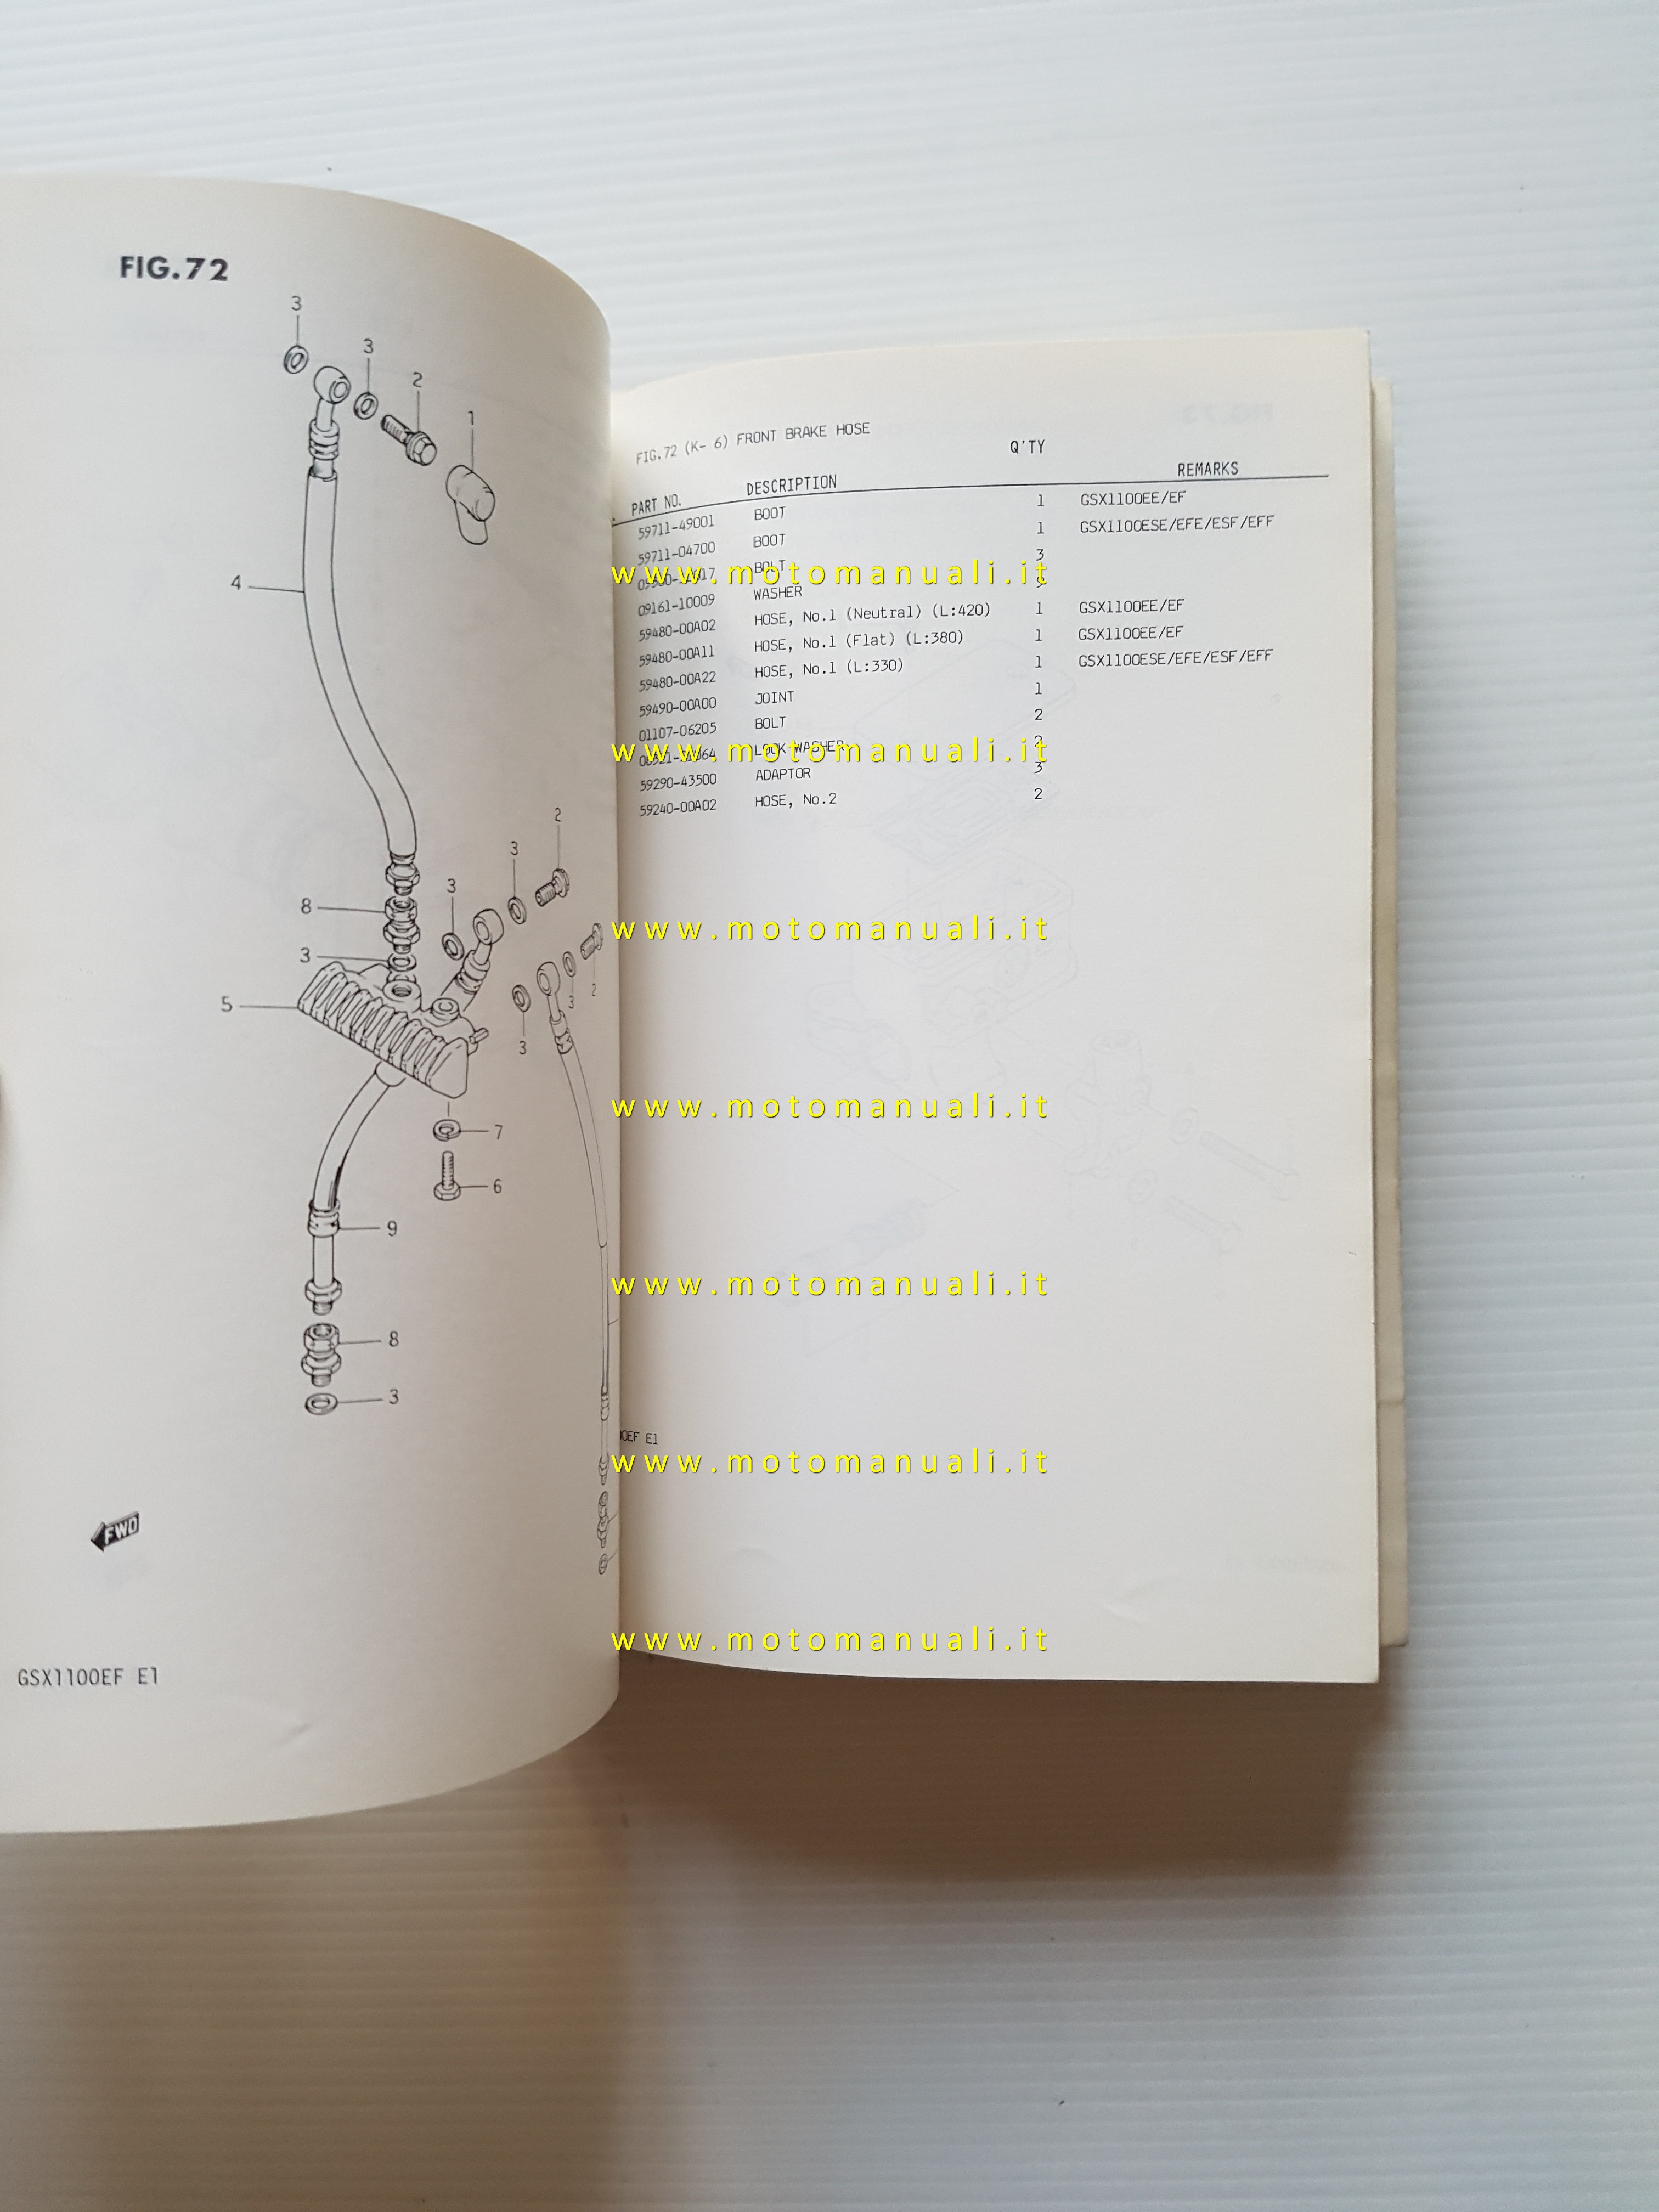 FIG.72
3
3
2
1
4
2
3
3
8
3
5
2
3
3
7
6
9
8
3
FWD
GSX1100EF E1
FIG.72 (K- 6) FRONT BRAKE HOSE
PART NO. DESCRIPTION Q'TY REMARKS
59711-49001 BOOT 1 GSX1100EE/EF
59711-04700 BOOT 1 GSX1100ESE/EFE/ESF/EFF
BOLT 3
09161-10009 WASHER
59480-00A02 HOSE, No.1 (Neutral) (L:420) 1 GSX1100EE/EF
59480-00A11 HOSE, No.1 (Flat) (L:380) 1 GSX1100EE/EF
59480-00A22 HOSE, No.1 (L:330) 1 GSX1100ESE/EFE/ESF/EFF
59490-00A00 JOINT 1
01107-06205 BOLT 2
LOCK WASHER 2
59290-43500 ADAPTOR 3
59240-00A02 HOSE, No.2 2
00EF E1
www.motomanuali.it
www.motomanuali.it
www.motomanuali.it
www.motomanuali.it
www.motomanuali.it
www.motomanuali.it
www.motomanuali.it